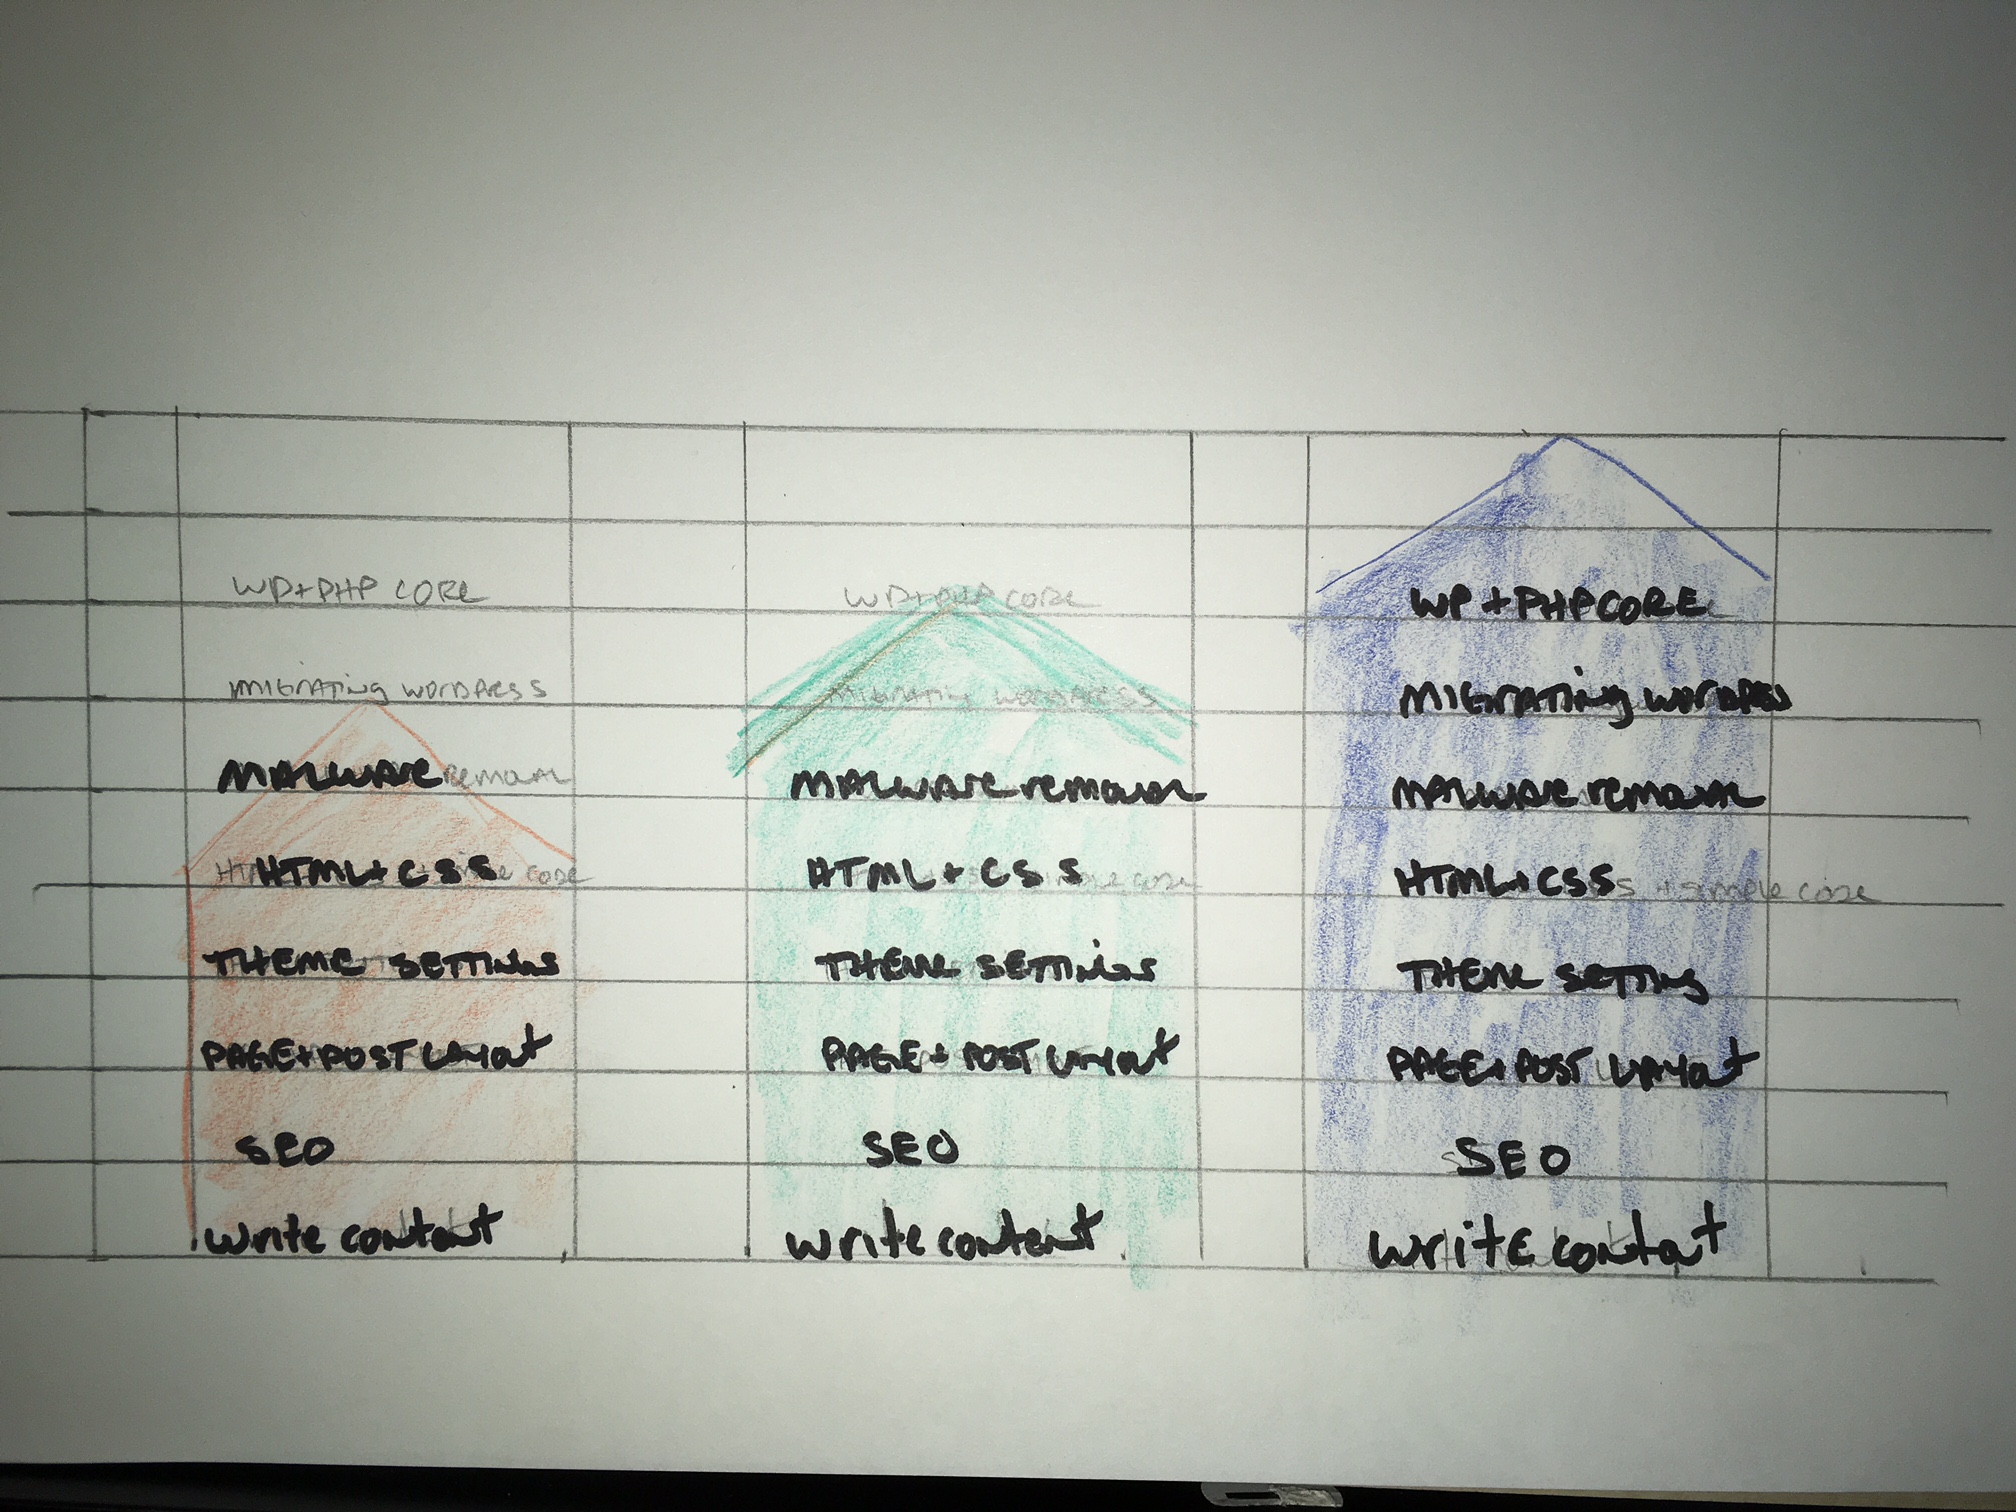 WP+PHP CORE
MIGRATING WORDPRESS
MALWARE REMOVAL
HTML+CSS CODE
THEME SETTINGS
PAGE+POST LAYOUT
SEO
Write content
WP+PHP CORE
MIGRATING WORDPRESS
MALWARE REMOVAL
HTML+CSS simple code
THEME SETTINGS
PAGE+POST LAYOUT
SEO
Write content
WP+PHP CORE
MIGRATING WORDPRESS
MALWARE REMOVAL
HTML+CSS S + simple code
THEME SETTING
PAGE+POST LAYOUT
SEO
WRITE content